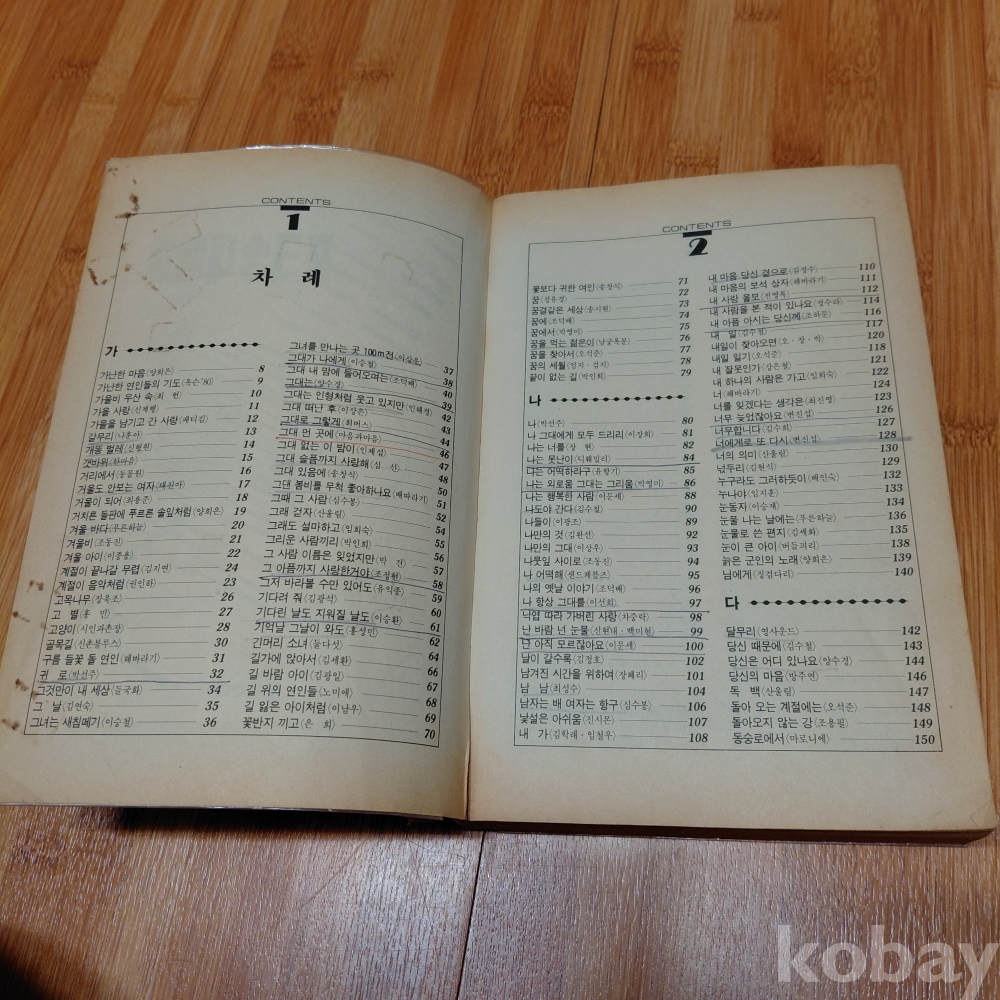 CONTENTS
1
차 례
가
가난한 마음(양희은) 8
가난한 연인들의 기도(옥슨'80) 9
가을비 우산 속(최 헌) 10
가을 사랑(신계행) 11
가을을 남기고 간 사랑(패티김) 12
갈무리(나훈아) 13
개똥 벌레(신형원) 14
갯바위(한마음) 15
거리에서(동물원) 16
거울도 안보는 여자(태진아) 17
겨울이 되어(최용준) 18
거치른 들판에 푸르른 솔잎처럼(양희은) 19
겨울 바다(푸른하늘) 20
겨울비(조동진) 21
겨울 아이(이종용) 22
계절이 끝나갈 무렵(김지연) 24
계절이 음악처럼(권인하) 23
고목나무(장욱조) 26
고 별(홍 민) 27
고양이(시인과촌장) 28
골목길(신촌블루스) 30
구름 들꽃 돌 연인(해바라기) 31
귀 로(박선주) 32
그것만이 내 세상(들국화) 34
그 날(김연숙) 35
그녀는 새침떼기(이승철) 36
그녀를 만나는 곳 100m전(이상우) 37
그대가 나에게(이승철) 38
그대 내 맘에 들어오며는(조덕배) 40
그대는(양수경) 39
그대는 인형처럼 웃고 있지만(민해경) 42
그대 떠난 후(이상은) 43
그대로 그렇게(휘버스) 44
그대 먼 곳에(마음과마음) 46
그대 없는 이 밤이(인제섭) 47
그대 슬픔까지 사랑해(심 신) 48
그대 있음에(송창식) 49
그댄 봄비를 무척 좋아하나요(배따라기) 50
그때 그 사람(심수봉) 51
그래 걷자(산울림) 52
그래도 설마하고(임희숙) 54
그리운 사람끼리(박인희) 55
그 사람 이름은 잊었지만(박 건) 56
그 아픔까지 사랑한거야(조정현) 57
그저 바라볼 수만 있어도(유익종) 58
기다려 줘(김광석) 59
기다린 날도 지워질 날도(이승환) 60
기억날 그날이 와도(홍성민) 61
긴머리 소녀(둘다섯) 62
길가에 앉아서(김세환) 64
길 바람 아이(김광일) 66
길 위의 연인들(노미애) 67
길 잃은 아이처럼(이남우) 68
꽃반지 끼고(은 희) 69
70
CONTENTS
2
꽃보다 귀한 여인(송창식) 71
꿈(정유경) 72
꿈결같은 세상(송시현) 73
꿈에(조덕배) 74
꿈에서(박영미) 75
꿈을 먹는 젊은이(남궁옥분) 76
꿈을 찾아서(오석준) 77
꿈의 세월(임지·검지) 78
끝이 없는 길(박인희) 79
나
나(박선주) 80
나 그대에게 모두 드리리(이장희) 81
나는 너를(장 현) 82
나는 못난이(딕훼밀리) 84
나는 어떡하라구(윤항기) 85
나는 외로움 그대는 그리움(박영미) 86
나는 행복한 사람(이문세) 88
나도야 간다(김수철) 90
나들이(이광조) 89
나만의 것(김완선) 92
나만의 그대(이상우) 93
나뭇잎 사이로(조동진) 94
나 어떡해(샌드페블즈) 95
나의 옛날 이야기(조덕배) 96
나 항상 그대를(이선희) 97
낙엽 따라 가버린 사랑(차중락) 98
난 바람 넌 눈물(신현대·백미현) 99
난 아직 모르잖아요(이문세) 100
날이 갈수록(김정호) 102
남겨진 시간을 위하여(장혜리) 101
남 남(최성수) 104
남자는 배 여자는 항구(심수봉) 106
낯설은 아쉬움(진시몬) 107
내 가(김학래·임철우) 108
내 마음 당신 곁으로(김정수) 110
내 마음의 보석 상자(해바라기) 111
내 사랑 울보(전영록) 112
내 사람을 본 적이 있나요(정수라) 114
내 아픔 아시는 당신께(조하문) 116
내 일(김수철) 117
내일이 찾아오면(오·장·박) 120
내일 일기(오석준) 118
내 잘못인가(강은철) 121
내 하나의 사람은 가고(임희숙) 122
너(해바라기) 124
너를 잊겠다는 생각은(최진영) 123
너무 늦었잖아요(변진섭) 126
너무합니다(김수희) 127
너에게로 또 다시(변진섭) 128
너의 의미(산울림) 130
넋두리(김현식) 129
누구라도 그러하듯이(배인숙) 132
누나야(임지훈) 131
눈동자(이승재) 134
눈물 나는 날에는(푸른하늘) 136
눈물로 쓴 편지(김세화) 135
눈이 큰 아이(버들피리) 138
늙은 군인의 노래(양희은) 139
님에게(징검다리) 140
다
달무리(영사운드) 142
당신 때문에(김수철) 143
당신은 어디 있나요(양수경) 144
당신의 마음(방주연) 146
독 백(산울림) 147
돌아 오는 계절에는(오석준) 148
돌아오지 않는 강(조용필) 149
동숭로에서(마로니에) 150
kobay